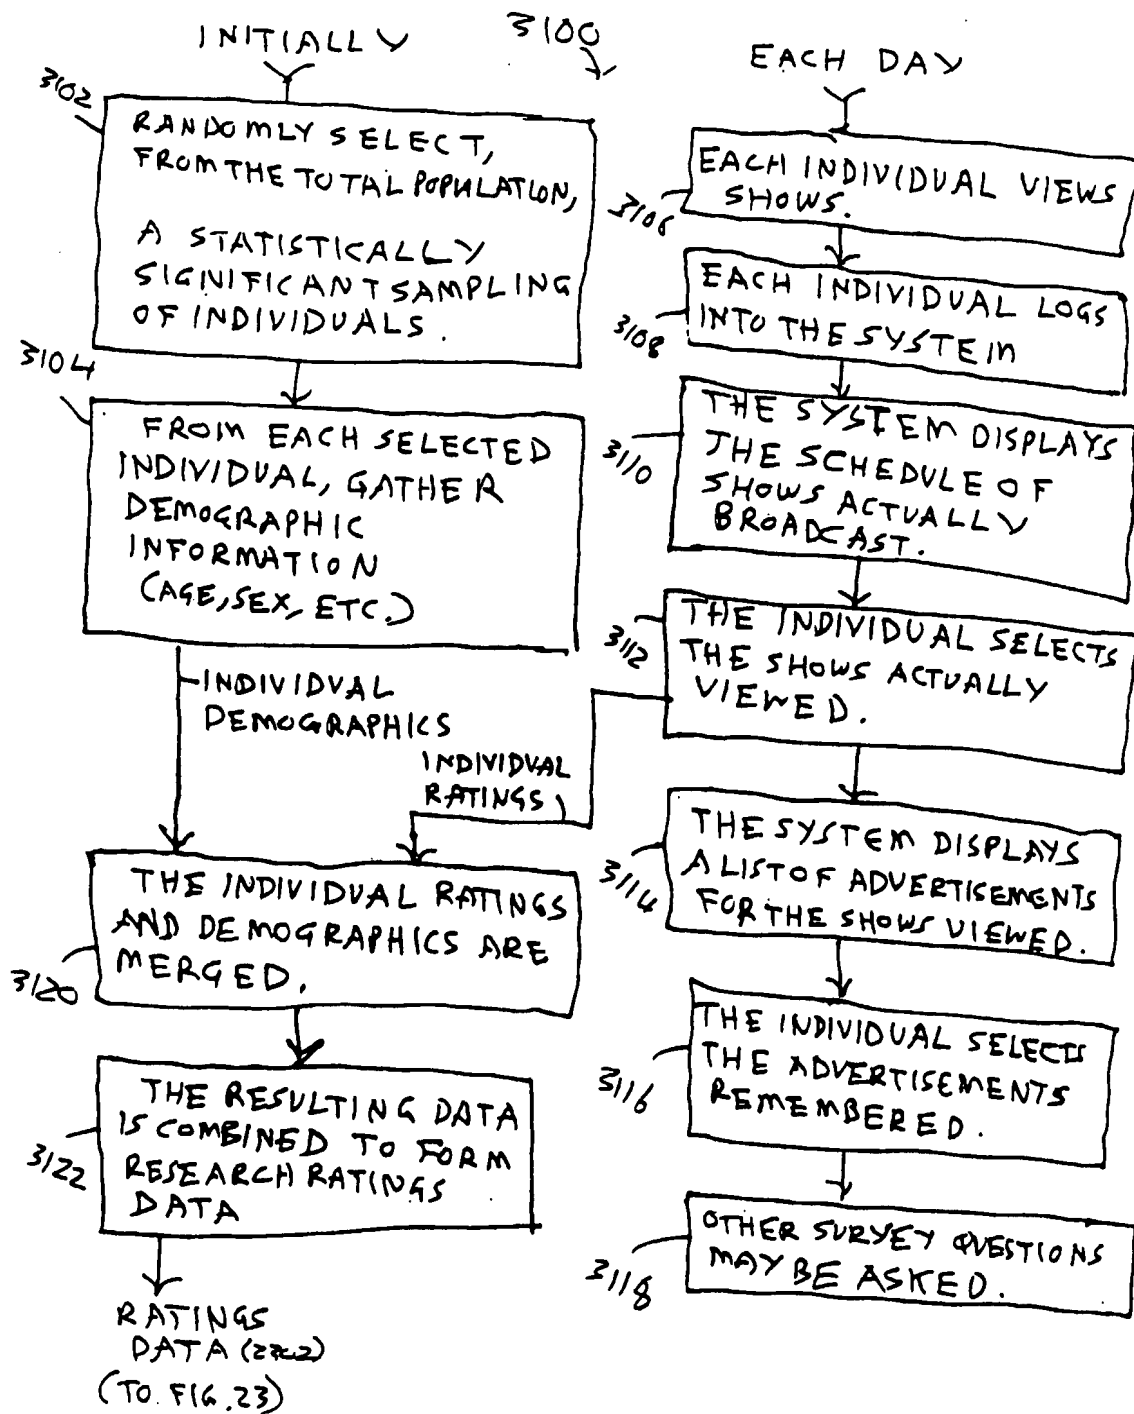 3100
INITIALLY
3102
RANDOMLY SELECT,
FROM THE TOTAL POPULATION,
A STATISTICALLY
SIGNIFICANT SAMPLING
OF INDIVIDUALS.
3104
FROM EACH SELECTED
INDIVIDUAL, GATHER
DEMOGRAPHIC
INFORMATION
(AGE, SEX, ETC.)
INDIVIDUAL
DEMOGRAPHICS
INDIVIDUAL
RATINGS
THE INDIVIDUAL RATINGS
AND DEMOGRAPHICS ARE
MERGED.
3120
THE RESULTING DATA
IS COMBINED TO FORM
RESEARCH RATINGS
DATA
3122
RATINGS
DATA
(TO FIG. 23)
EACH DAY
EACH INDIVIDUAL VIEWS
SHOWS.
3106
EACH INDIVIDUAL LOGS
INTO THE SYSTEM
3108
THE SYSTEM DISPLAYS
THE SCHEDULE OF
SHOWS ACTUALLY
BROADCAST.
3110
THE INDIVIDUAL SELECTS
THE SHOWS ACTUALLY
VIEWED.
3112
THE SYSTEM DISPLAYS
A LIST OF ADVERTISEMENTS
FOR THE SHOWS VIEWED.
3114
THE INDIVIDUAL SELECTS
THE ADVERTISEMENTS
REMEMBERED.
3116
OTHER SURVEY QUESTIONS
MAY BE ASKED.
3118